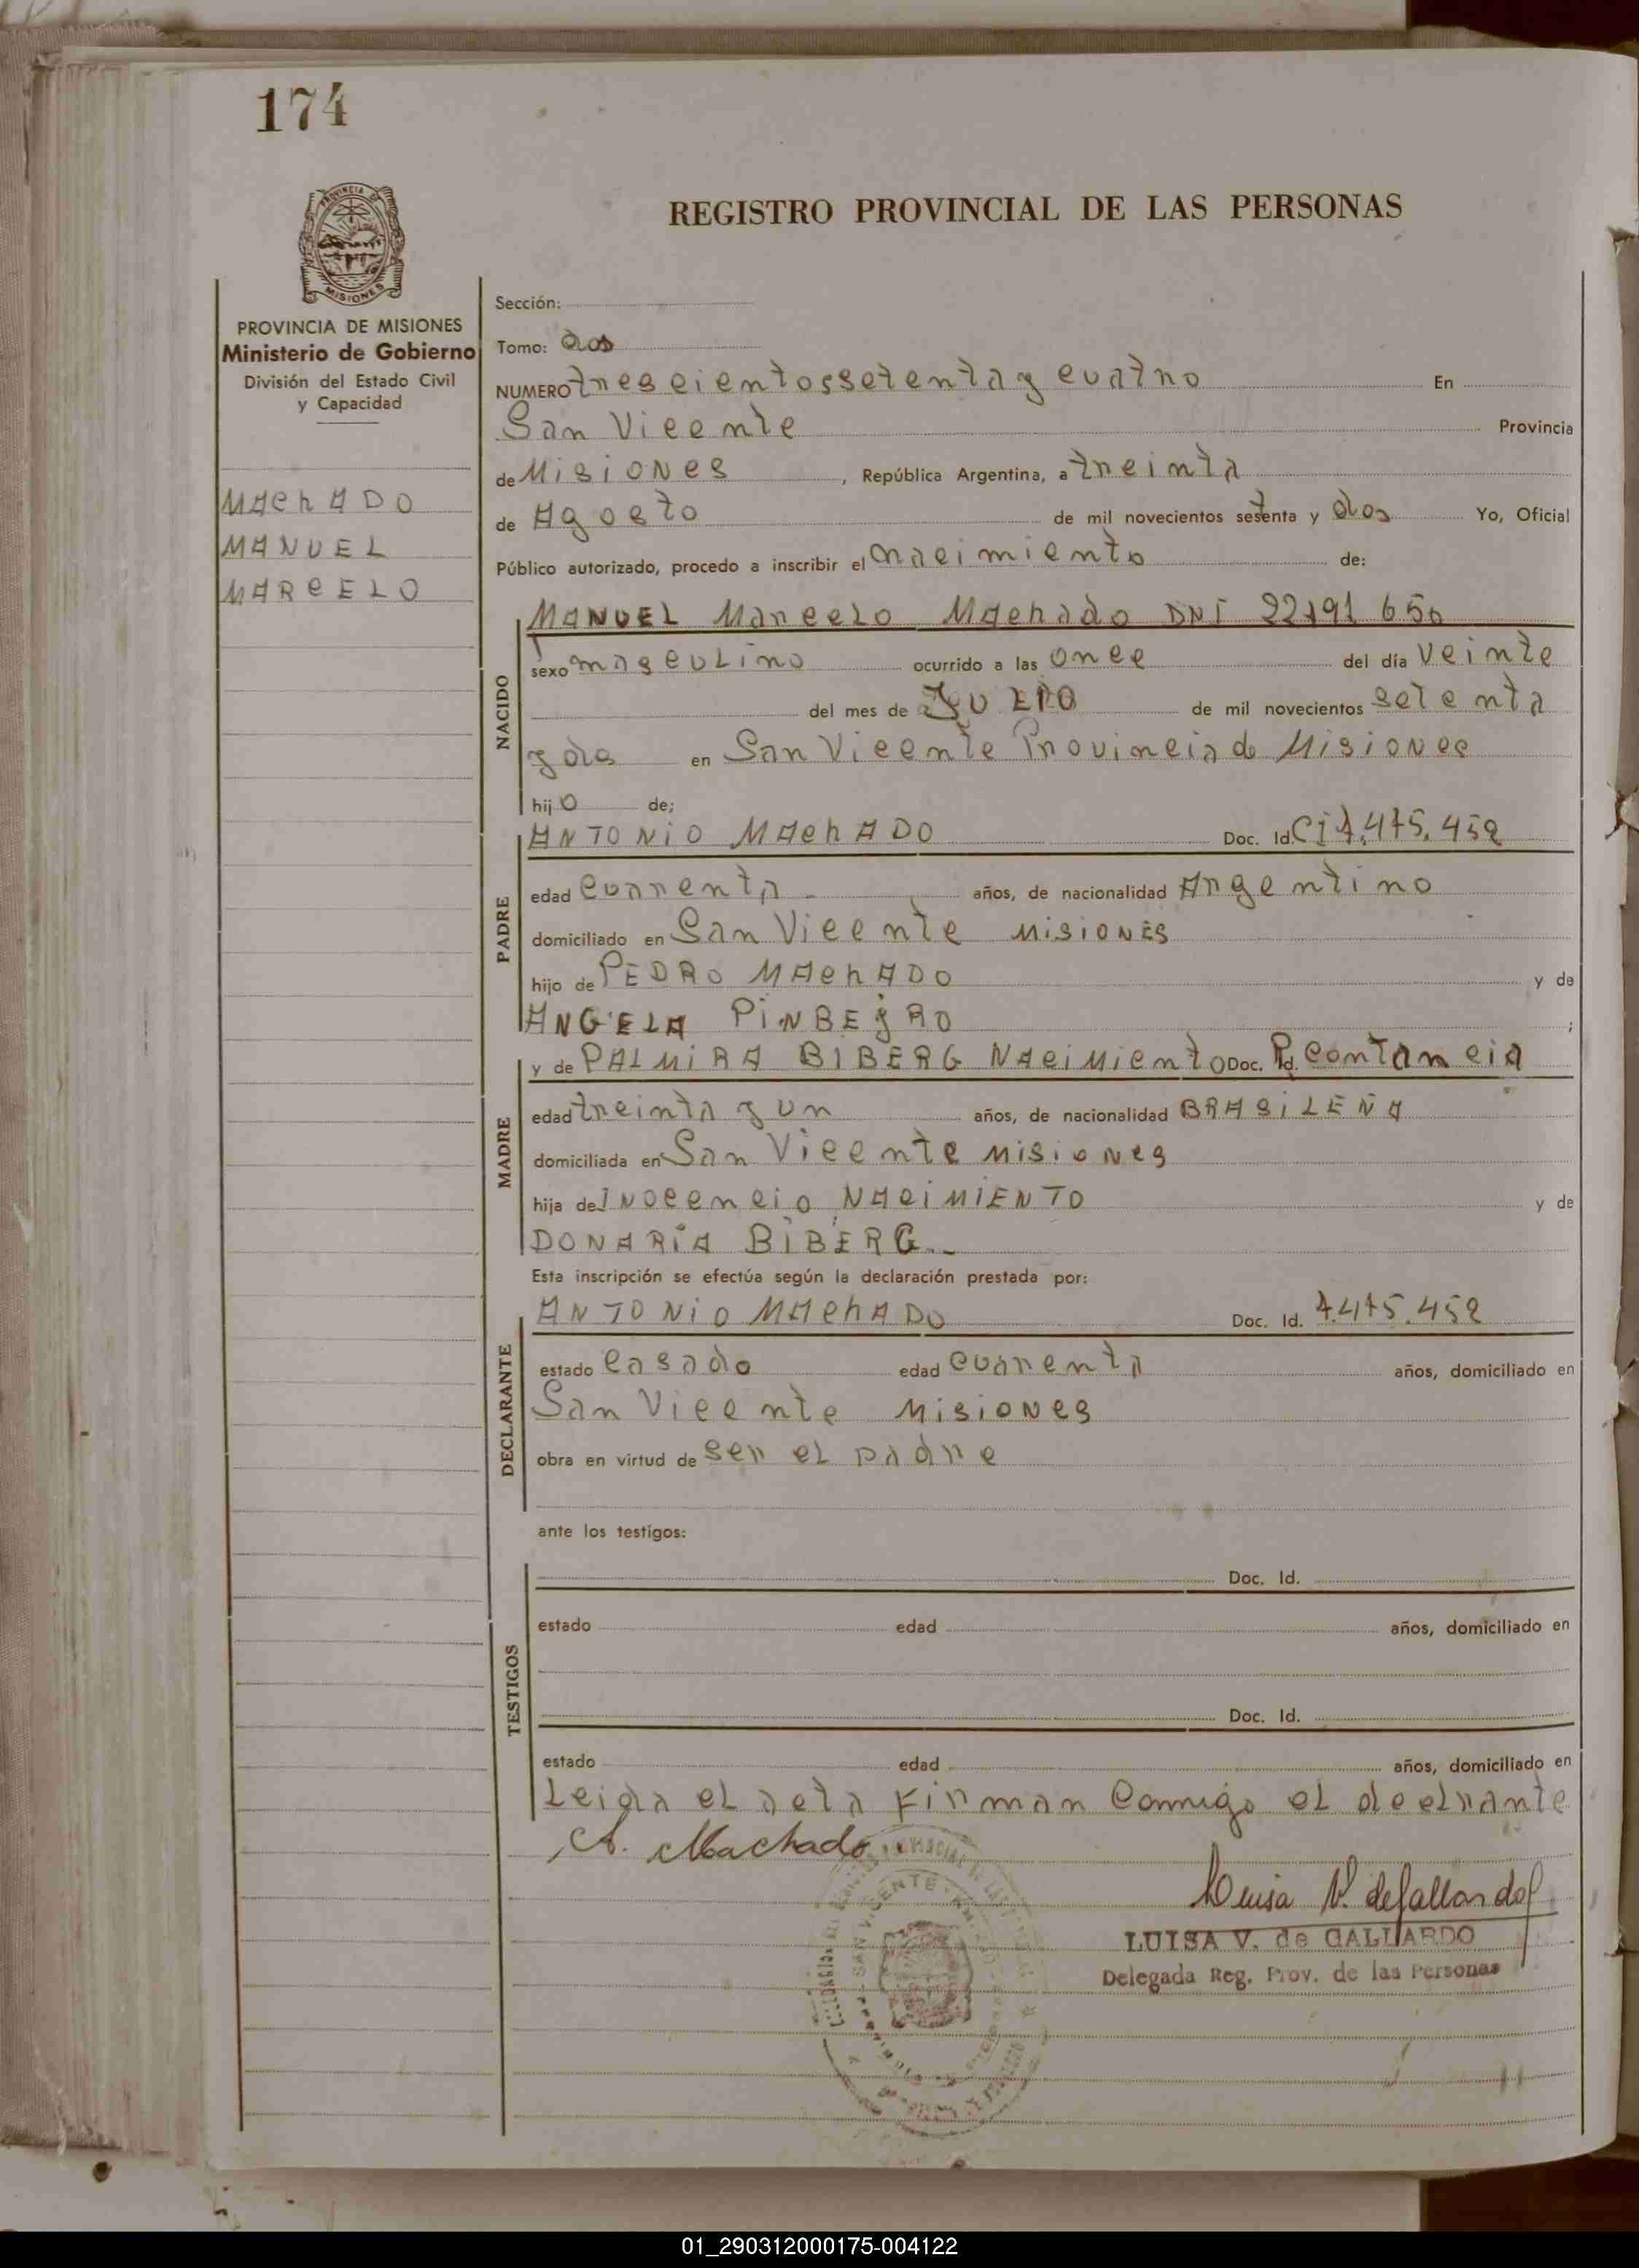 174
REGISTRO PROVINCIAL DE LAS PERSONAS
PROVINCIA DE MISIONES
Ministerio de Gobierno
División del Estado Civil
y Capacidad
MACHADO
MANUEL
MARCELO
Sección:
Tomo: dos
NUMERO trescientossetenta y cuatro En
San Vicente Provincia
de Misiones, República Argentina, a treinta
de Agosto de mil novecientos setenta y dos Yo, Oficial
Público autorizado, procedo a inscribir el nacimiento de:
MANUEL Marcelo Machado DNI 22191650
NACIDO
sexo masculino ocurrido a las once del día veinte
del mes de JULIO de mil novecientos setenta
y dos en San Vicente Provincia de Misiones
hijo de;
ANTONIO MACHADO Doc. Id. CI 7.475.452
PADRE
edad cuarenta años, de nacionalidad Argentino
domiciliado en San Vicente MISIONES
hijo de PEDRO MACHADO y de
ANGELA PINBEJRO ;
y de PALMIRA BIBERG NACIMIENTO Doc. Id. contancia
MADRE
edad treinta y un años, de nacionalidad BRASILEÑA
domiciliada en San Vicente Misiones
hija de INOCENCIO NACIMIENTO y de
DONARIA BIBERG.
Esta inscripción se efectúa según la declaración prestada por:
ANTONIO MACHADO Doc. Id. 7.475.452
DECLARANTE
estado casado edad cuarenta años, domiciliado en
San Vicente Misiones
obra en virtud de ser el padre
ante los testigos:
Doc. Id.
TESTIGOS
estado edad años, domiciliado en
Doc. Id.
estado edad años, domiciliado en
Leida el acta firman comigo el declrante
A. Machado
Luisa V. de Gallardo
LUISA V. de GALLARDO
Delegada Reg. Prov. de las Personas
01_290312000175-004122